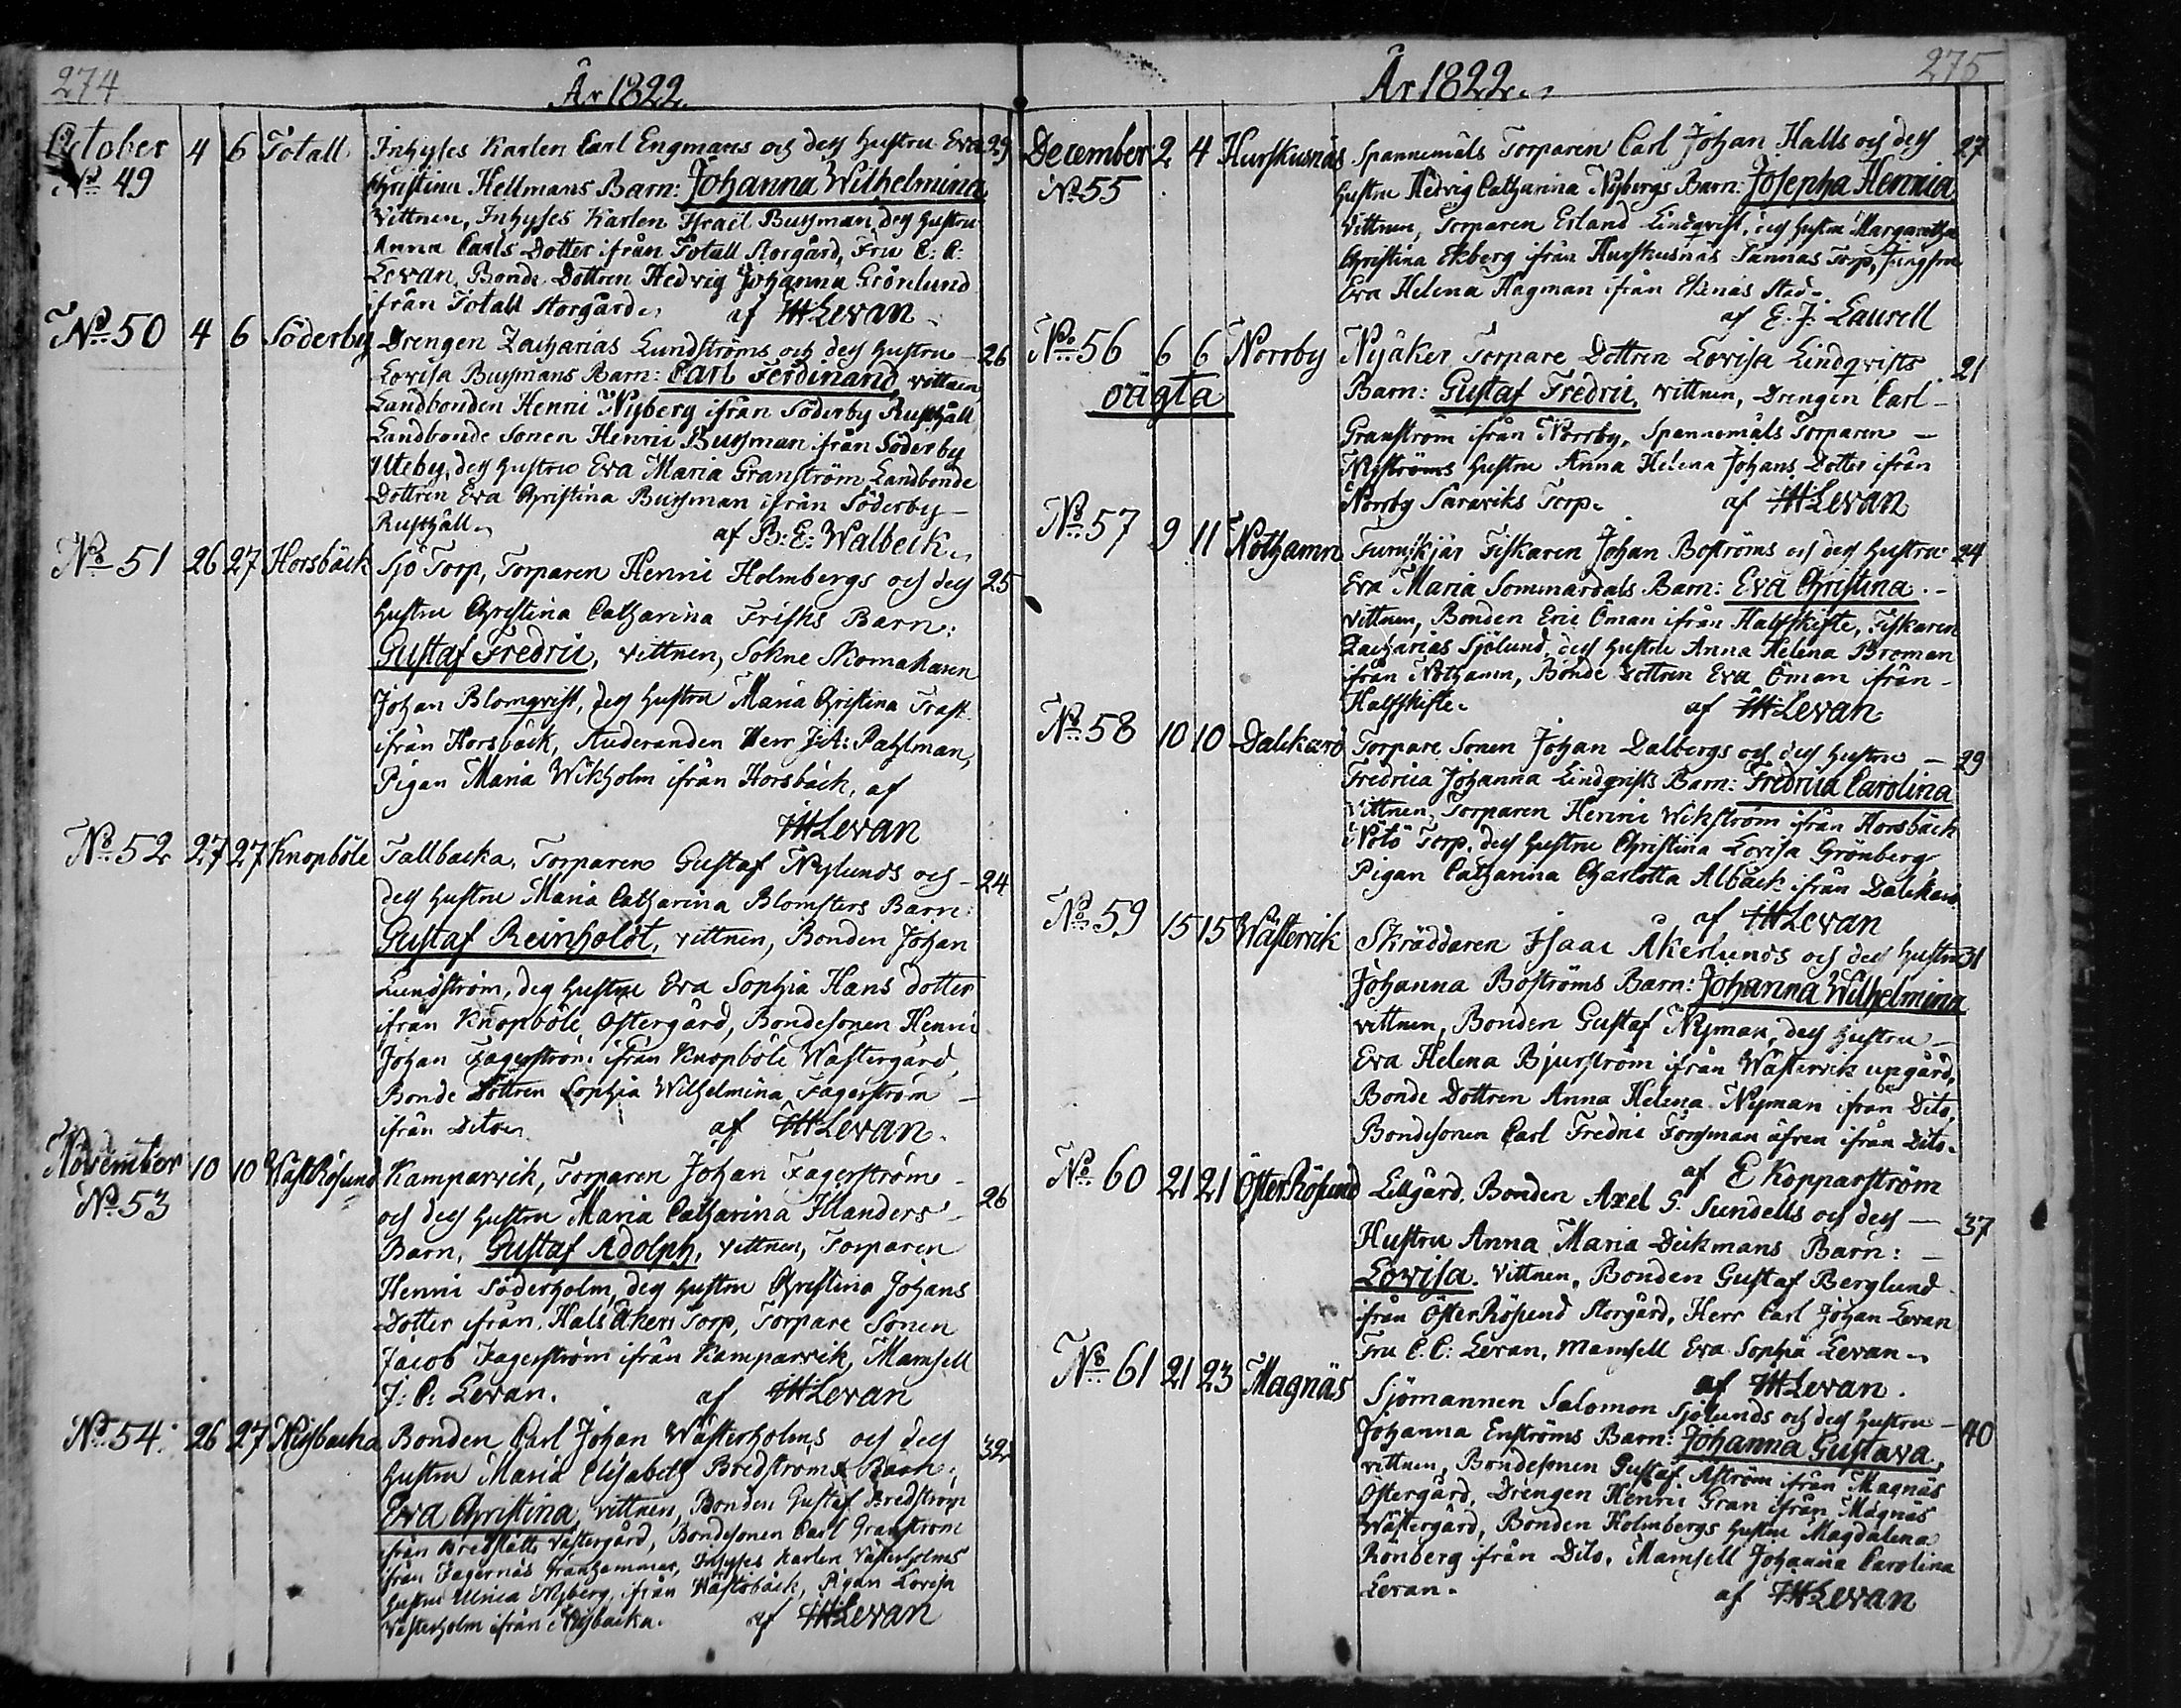 274
År 1822.
October 4 6 Totall Inhyses Karlen Carl Engmans och dess hustru Eva 29
No 49 Christina Hellmans Barn: Johanna Wilhelmina
vittnen, Inhyses Karlen Israil Bussman, dess hustru
Anna Carls Dotter ifrån Totall Storgård, Fru C: C:
Levan, Bonde Dottren Hedvig Johanna Grönlund
ifrån Totall Storgård. af JH Levan
No 50 4 6 Söderby Drengen Zacharias Lundströms och dess hustru 26
Lovisa Bussmans Barn: Carl Ferdinand, vittnen
Landbonden Henric Nyberg ifrån Söderby Rusthåll
Landbonde Sonen Henric Bussman ifrån Söderby
Utteby, dess hustru Eva Maria Granström, Landbonde
Dottren Eva Christina Bussman ifrån Söderby
Rusthåll. af B: E: Walbeck
No 51 26 27 Horsbäck Sjö Torp, Torparen Henric Holmbergs och dess 25
hustru Christina Catharina Frisks Barn:
Gustaf Fredric, vittnen, Sokne Skomakaren
Johan Blomqvist, dess hustru Maria Christina Trast
ifrån Horsbäck, Studeranden Herr J: A: Pahlman,
Pigan Maria Wikholm ifrån Horsbäck, af
JH Levan
No 52 27 27 Knopböle Tallbacka, Torparen Gustaf Nylunds och 24
dess hustru Maria Catharina Blomsters Barn:
Gustaf Reinholdt, vittnen, Bonden Johan
Lundström, dess hustru Eva Sophia Hans dotter
ifrån Knopböle Östergård, Bondesonen Henric
Johan Fagerström ifrån Knopböle Wästergård,
Bonde Dottren Sophia Wilhelmina Fagerström
ifrån Dito. af JH Levan.
November 10 10 Wäst Rösund Kamparvik, Torparen Johan Fagerströms
No 53 och dess hustru Maria Catharina Illanders 26
Barn, Gustaf Adolph, vittnen, Torparen
Henric Söderholm, dess hustru Christina Johans
Dotter ifrån Hals Åkers Torp, Torpare Sonen
Jacob Fagerström ifrån Kamparvik, Mamsell
J: C: Levan. af JH Levan
No 54 26 27 Nysbacka Bonden Carl Johan Wästerholms och dess 32
hustru Maria Elisabeth Bredströms Barn:
Eva Christina, vittnen, Bonden Gustaf Bredström
ifrån Bredslätt Västergård, Bondesonen Carl Granström
ifrån Fagernäs Granhammar, Inhyses Karlen Västerholms
hustru Ulrica Nyberg, ifrån Wästobäck, Pigan Lovisa
Västerholm ifrån Nysbacka. af JH Levan
275
År 1822.
December 2 4 Hurskusnäs Spannemåls Torparen Carl Johan Halls och dess 27
No 55 hustru Hedvig Catharina Nybergs Barn: Josepha Hennia
vittnen, Torparen Erland Lindqvist, dess hustru Margaretha
Christina Ekberg ifrån Hurskusnäs Sannäs Torp, Jungfrun
Eva Helena Hagman ifrån Ekenäs Stad.
af E. J. Laurell
No 56 6 6 Norrby Nyåker Torpare Dottren Lovisa Lindqvists 21
oägta Barn: Gustaf Fredric, vittnen, Drengen Carl
Granström ifrån Norrby, Spannemåls Torparen
Nyströms hustru Anna Helena Johans Dotter ifrån
Norrby Saraviks Torp. af JH Levan
No 57 9 11 Nothamn Furuskjär Fiskaren Johan Boströms och dess hustru 24
Eva Maria Sommardals Barn: Eva Christina.
vittnen, Bonden Eric Öman ifrån Halfskifte, Fiskaren
Zacharias Sjölund, dess hustru Anna Helena Broman
ifrån Nothamn, Bonde Dottren Eva Öman ifrån
Halfskifte. af JH Levan
No 58 10 10 Dalekarö Torpare Sonen Johan Dalbergs och dess hustru 29
Fredrica Johanna Lindqvists Barn: Fredrica Carolina
vittnen, Torparen Henric Wikström ifrån Horsbäck
Nötö Torp, dess hustru Christina Lovisa Grönberg,
Pigan Catharina Charlotta Albäck ifrån Dalekarö
af JH Levan
No 59 15 15 Wästervik Skräddaren Isaac Åkerlunds och dess hustru 31
Johanna Boströms Barn: Johanna Wilhelmina
vittnen, Bonden Gustaf Nyman, dess hustru
Eva Helena Bjurström ifrån Wästervik upgård,
Bonde Dottren Anna Helena Nyman ifrån Dito,
Bondesonen Carl Fredric Forsman äfven ifrån Dito.
af E Kopparström
No 60 21 21 Öster Rösund Lillgård, Bonden Axel G: Sundells och dess 37
Hustru Anna Maria Dickmans Barn:
Lovisa. Vittnen, Bonden Gustaf Berglund
ifrån Öster Rösund Storgård, Herr Carl Johan Levan
Fru C. C: Levan, Mamsell Eva Sophia Levan.
af JH Levan.
No 61 21 23 Magnäs Sjömannen Salomon Sjölunds och dess hustru
Johanna Enströms Barn: Johanna Gustava, 40
vittnen, Bondesonen Gustaf Åström ifrån Magnäs
Östergård, Drengen Henric Gran ifrån Magnäs
Wästergård, Bonden Holmbergs hustru Magdalena
Rönberg ifrån Dito, Mamsell Johanna Carolina
Levan. af JH Levan